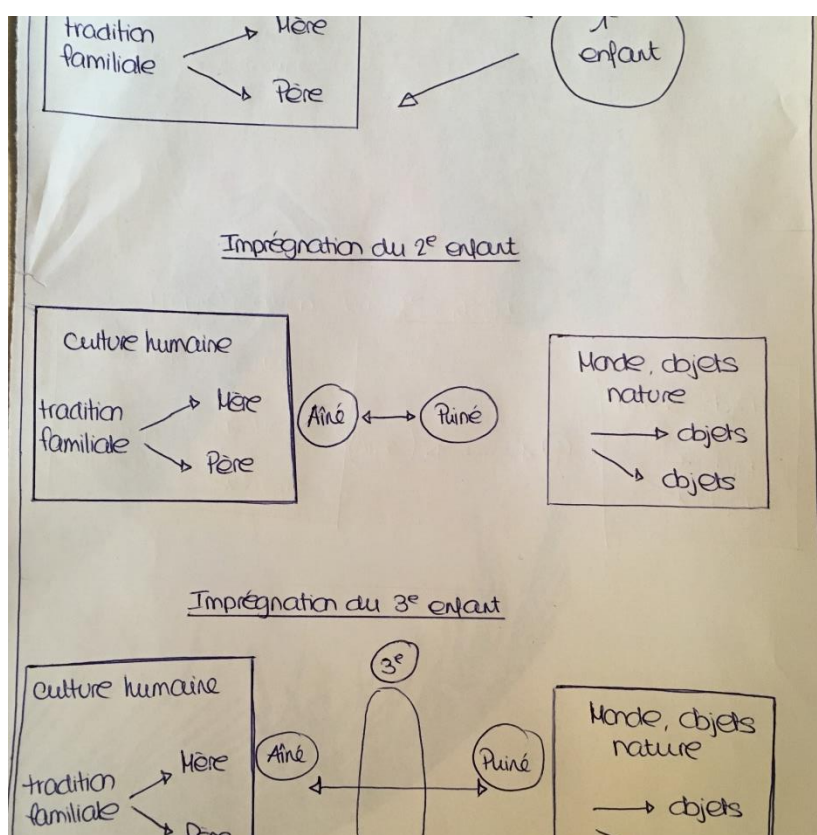 tradition
familiale
Mère
Père
1
enfant
Imprégnation du 2e enfant
culture humaine
tradition
familiale
Mère
Père
Aîné
Puiné
Monde, objets
nature
objets
objets
Imprégnation du 3e enfant
3e
culture humaine
tradition
familiale
Mère
Père
Aîné
Puiné
Monde, objets
nature
objets